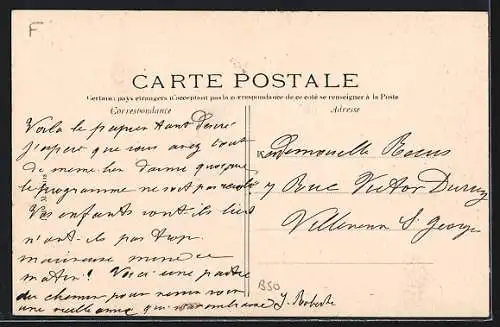 F
CARTE POSTALE
Certains pays étrangers n'acceptent pas la correspondance de ce côté se renseigner à la Poste
Correspondance
Adresse
Voila le papier tant désiré
J'espère que vous avez tout
de meme bien quoique
le programme ne soit pas
Vos enfants sont ils bien
n'ont-ils pas trop
mauvaise mine ce
matin! Voici une
du chemin pour venir voir
une vieille amie qui vous embrasse J. Roberte
Mademoiselle
7 Rue Victor Duruy
Villeneuve St Georges
B50